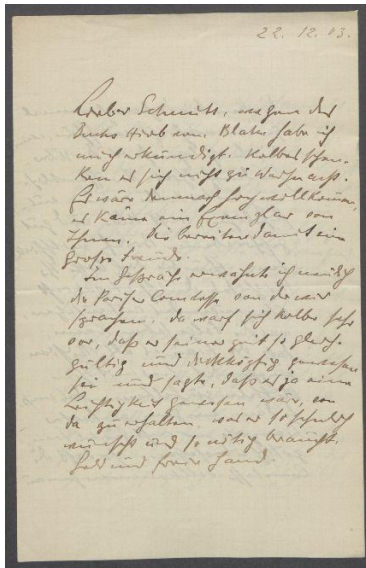 22. 12. 03.
Lieber Schmitt, wegen des
Buchs Hiob von Blake habe ich
mich erkundigt. Kolbe schen-
ken es sich nicht zu Weihnacht.
Es wäre demnach hochwillkommen,
es käme ein Exemplar von
Ihnen. Sie bereiten damit eine
große Freude.
Im Gespräch erwähnte ich neulich
die Pariser Comtesse von der wir
sprachen. Da warf sich Kolbe sehr
vor, daß er seiner Zeit so gleich-
gültig und dickköpfig gewesen
sei und sagte, daß es ja eine
Leichtigkeit gewesen wäre, von
da zu erhalten was er so sehnlich
wünscht und so nötig braucht.
Geld und freie Hand.